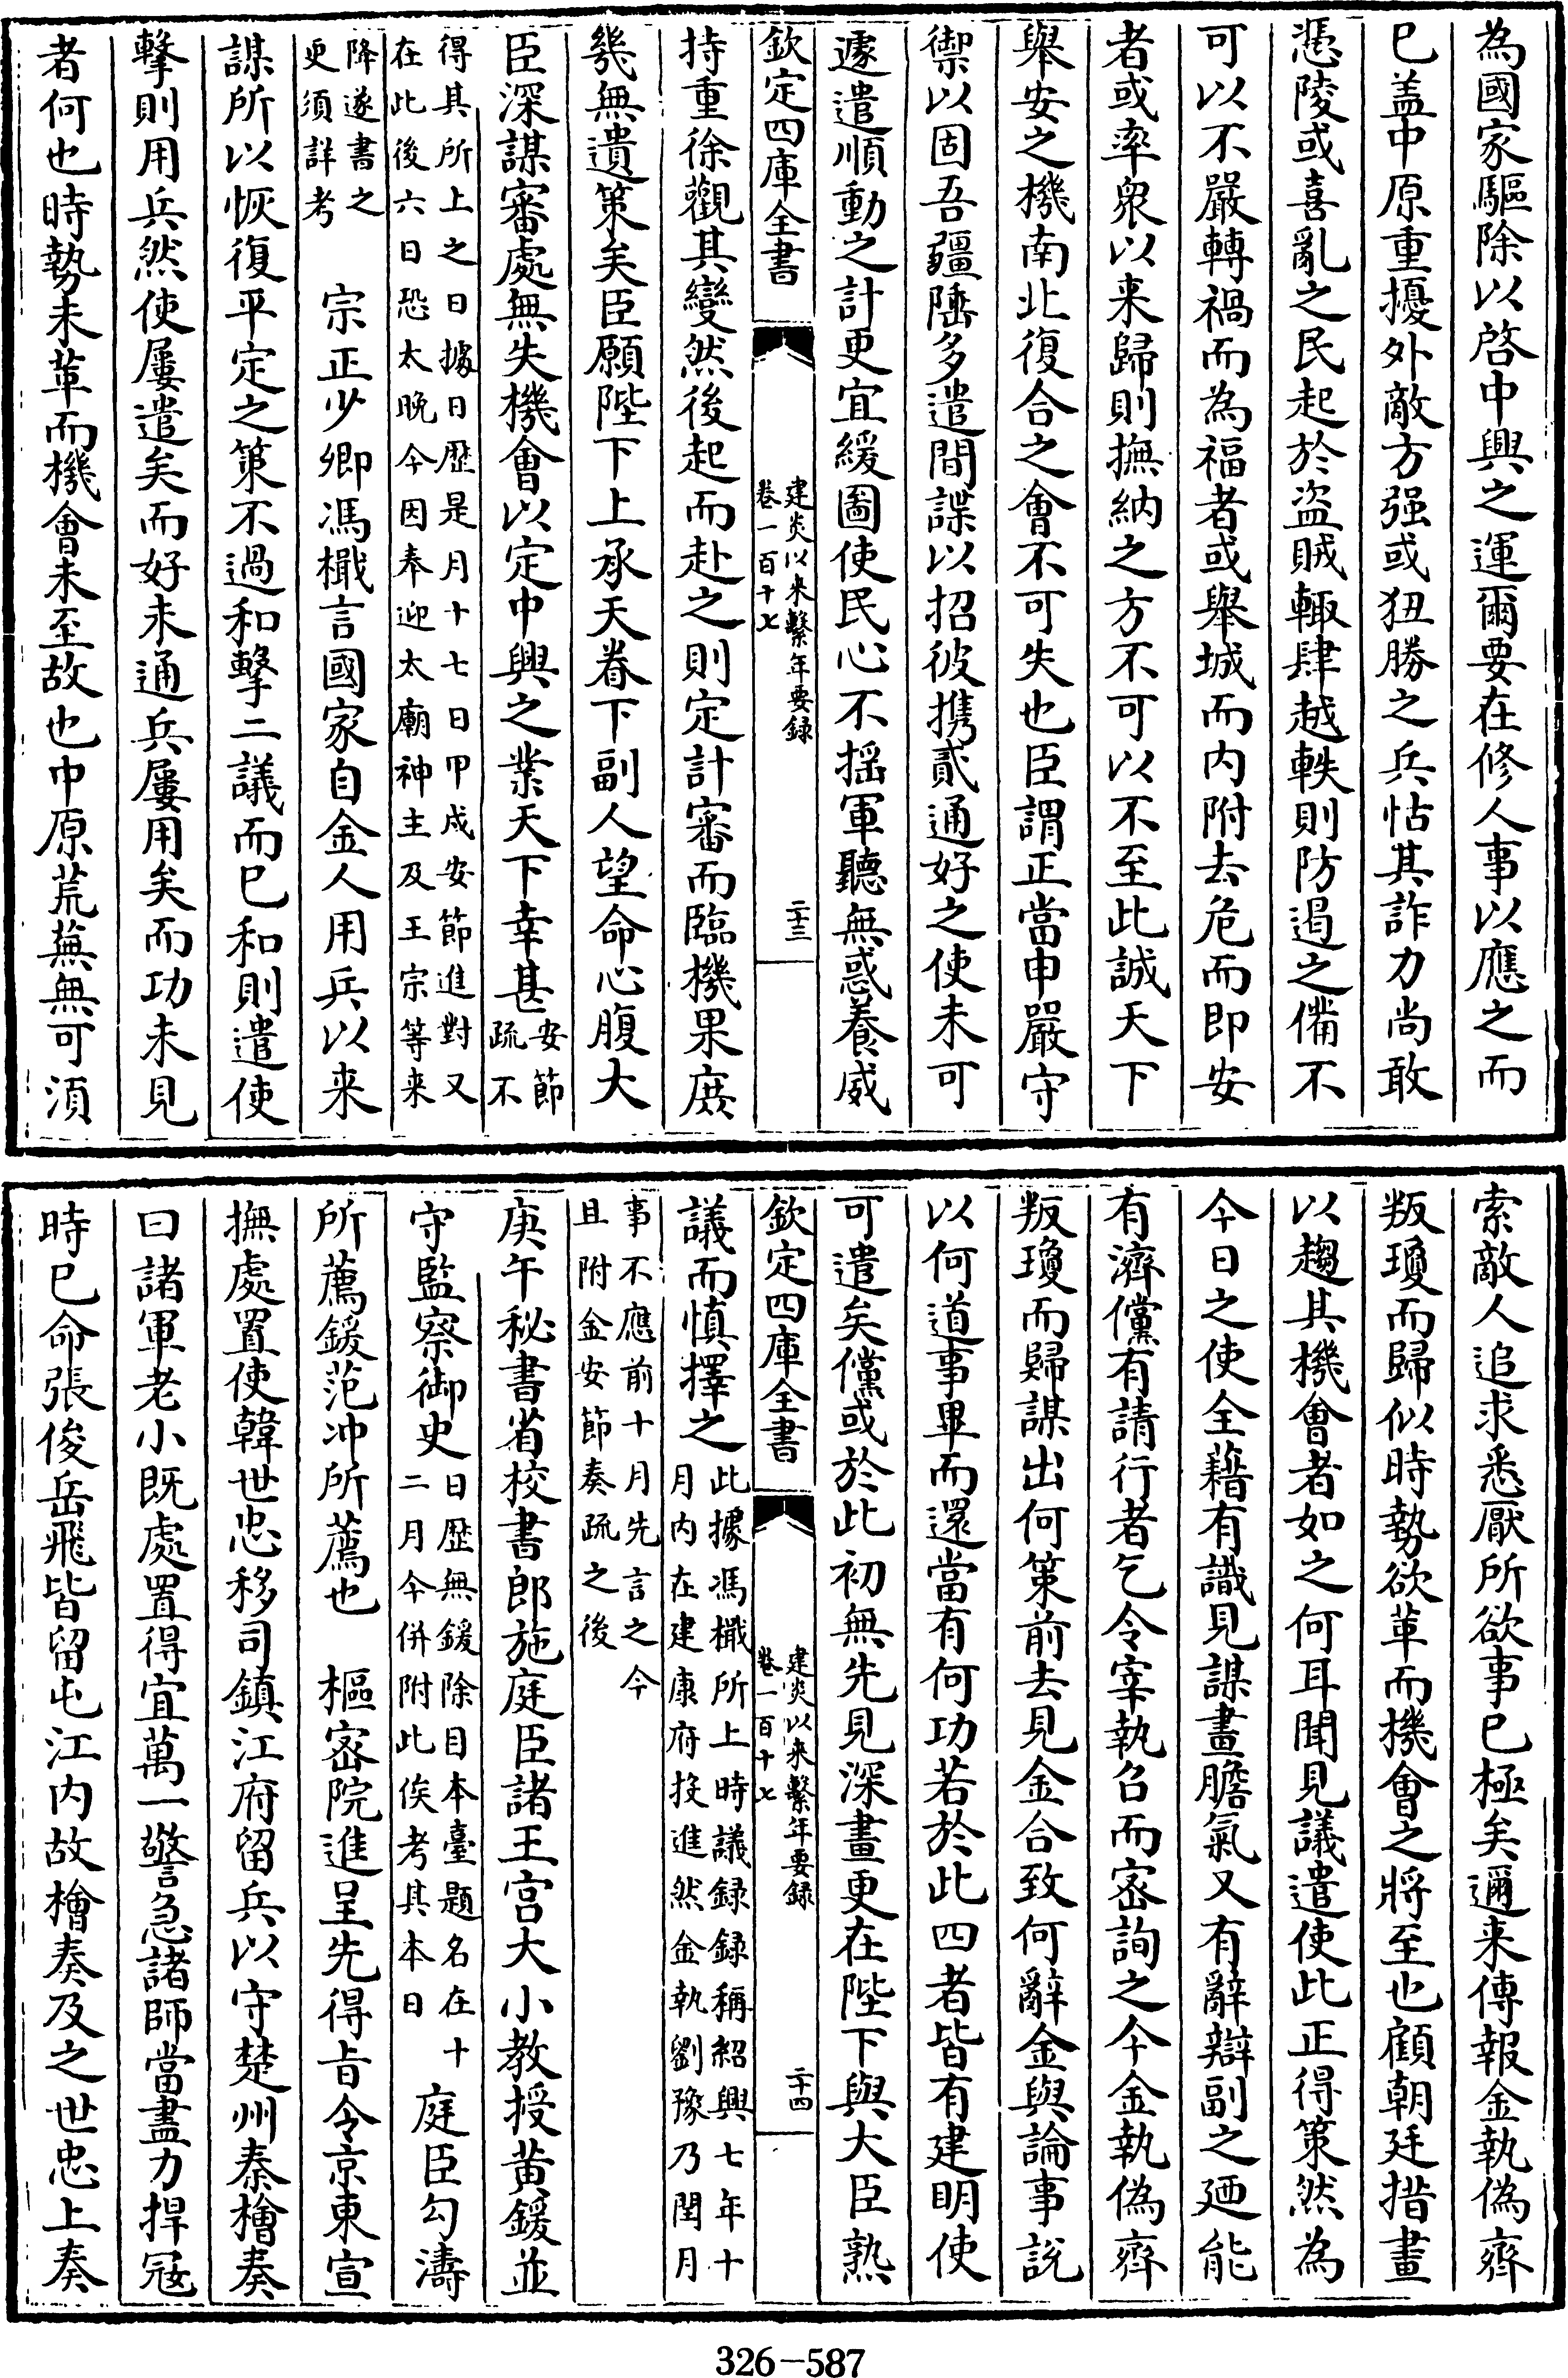 為國家驅除以啓中興之運爾要在修人事以應之而
已盖中原重擾外敵方强或狃勝之兵怙其詐力尚敢
憑陵或喜亂之民起於盜賊輙肆越軼則防遏之備不
可以不嚴轉禍而為福者或舉城而内附去危而即安
者或率衆以来歸則撫納之方不可以不至此誠天下
舉安之機南北復合之會不可失也臣謂正當申嚴守
禦以固吾疆陲多遣間諜以招彼携貳通好之使未可
遽遣順動之計更宜緩圖使民心不揺軍聽無惑養威
欽定四庫全書
建炎以来繫年要録
卷一百十七
二十三
持重徐觀其變然後起而赴之則定計審而臨機果庶
幾無遺策矣臣願陛下上承天眷下副人望命心腹大
臣深謀審處無失機會以定中興之業天下幸甚
安節
疏不
得其所上之日據日歴是月十七日甲戌安節進對又
在此後六日恐太晩今因奉迎太廟神主及王宗等来
降遂書之
更須詳考
宗正少卿馮檝言國家自金人用兵以来
謀所以恢復平定之策不過和擊二議而已和則遣使
擊則用兵然使屢遣矣而好未通兵屢用矣而功未見
者何也時勢未革而機會未至故也中原荒蕪無可須
索敵人追求悉厭所欲事已極矣邇来傳報金執偽齊
叛瓊而歸似時勢欲革而機會之將至也顧朝廷措畫
以趨其機會者如之何耳聞見議遣使此正得策然為
今日之使全藉有識見謀畫膽氣又有辭辯副之廼能
有濟儻有請行者乞令宰執召而密詢之今金執偽齊
叛瓊而歸謀出何策前去見金合致何辭金與論事説
以何道事畢而還當有何功若於此四者皆有建明使
可遣矣儻或於此初無先見深畫更在陛下與大臣熟
欽定四庫全書
建炎以来繫年要録
卷一百十七
二十四
議而慎擇之
此據馮檝所上時議録録稱紹興七年十
月内在建康府投進然金執劉豫乃閏月
事不應前十月先言之今
且附金安節奏疏之後
庚午秘書省校書郎施庭臣諸王宫大小教授黄鍰並
守監察御史
日歴無鍰除目本臺題名在十
二月今併附此俟考其本日
庭臣勾濤
所薦鍰范冲所薦也
樞密院進呈先得旨令京東宣
撫處置使韓世忠移司鎮江府留兵以守楚州秦檜奏
曰諸軍老小既處置得宜萬一警急諸師當盡力捍寇
時已命張俊岳飛皆留屯江内故檜奏及之世忠上奏
326-587